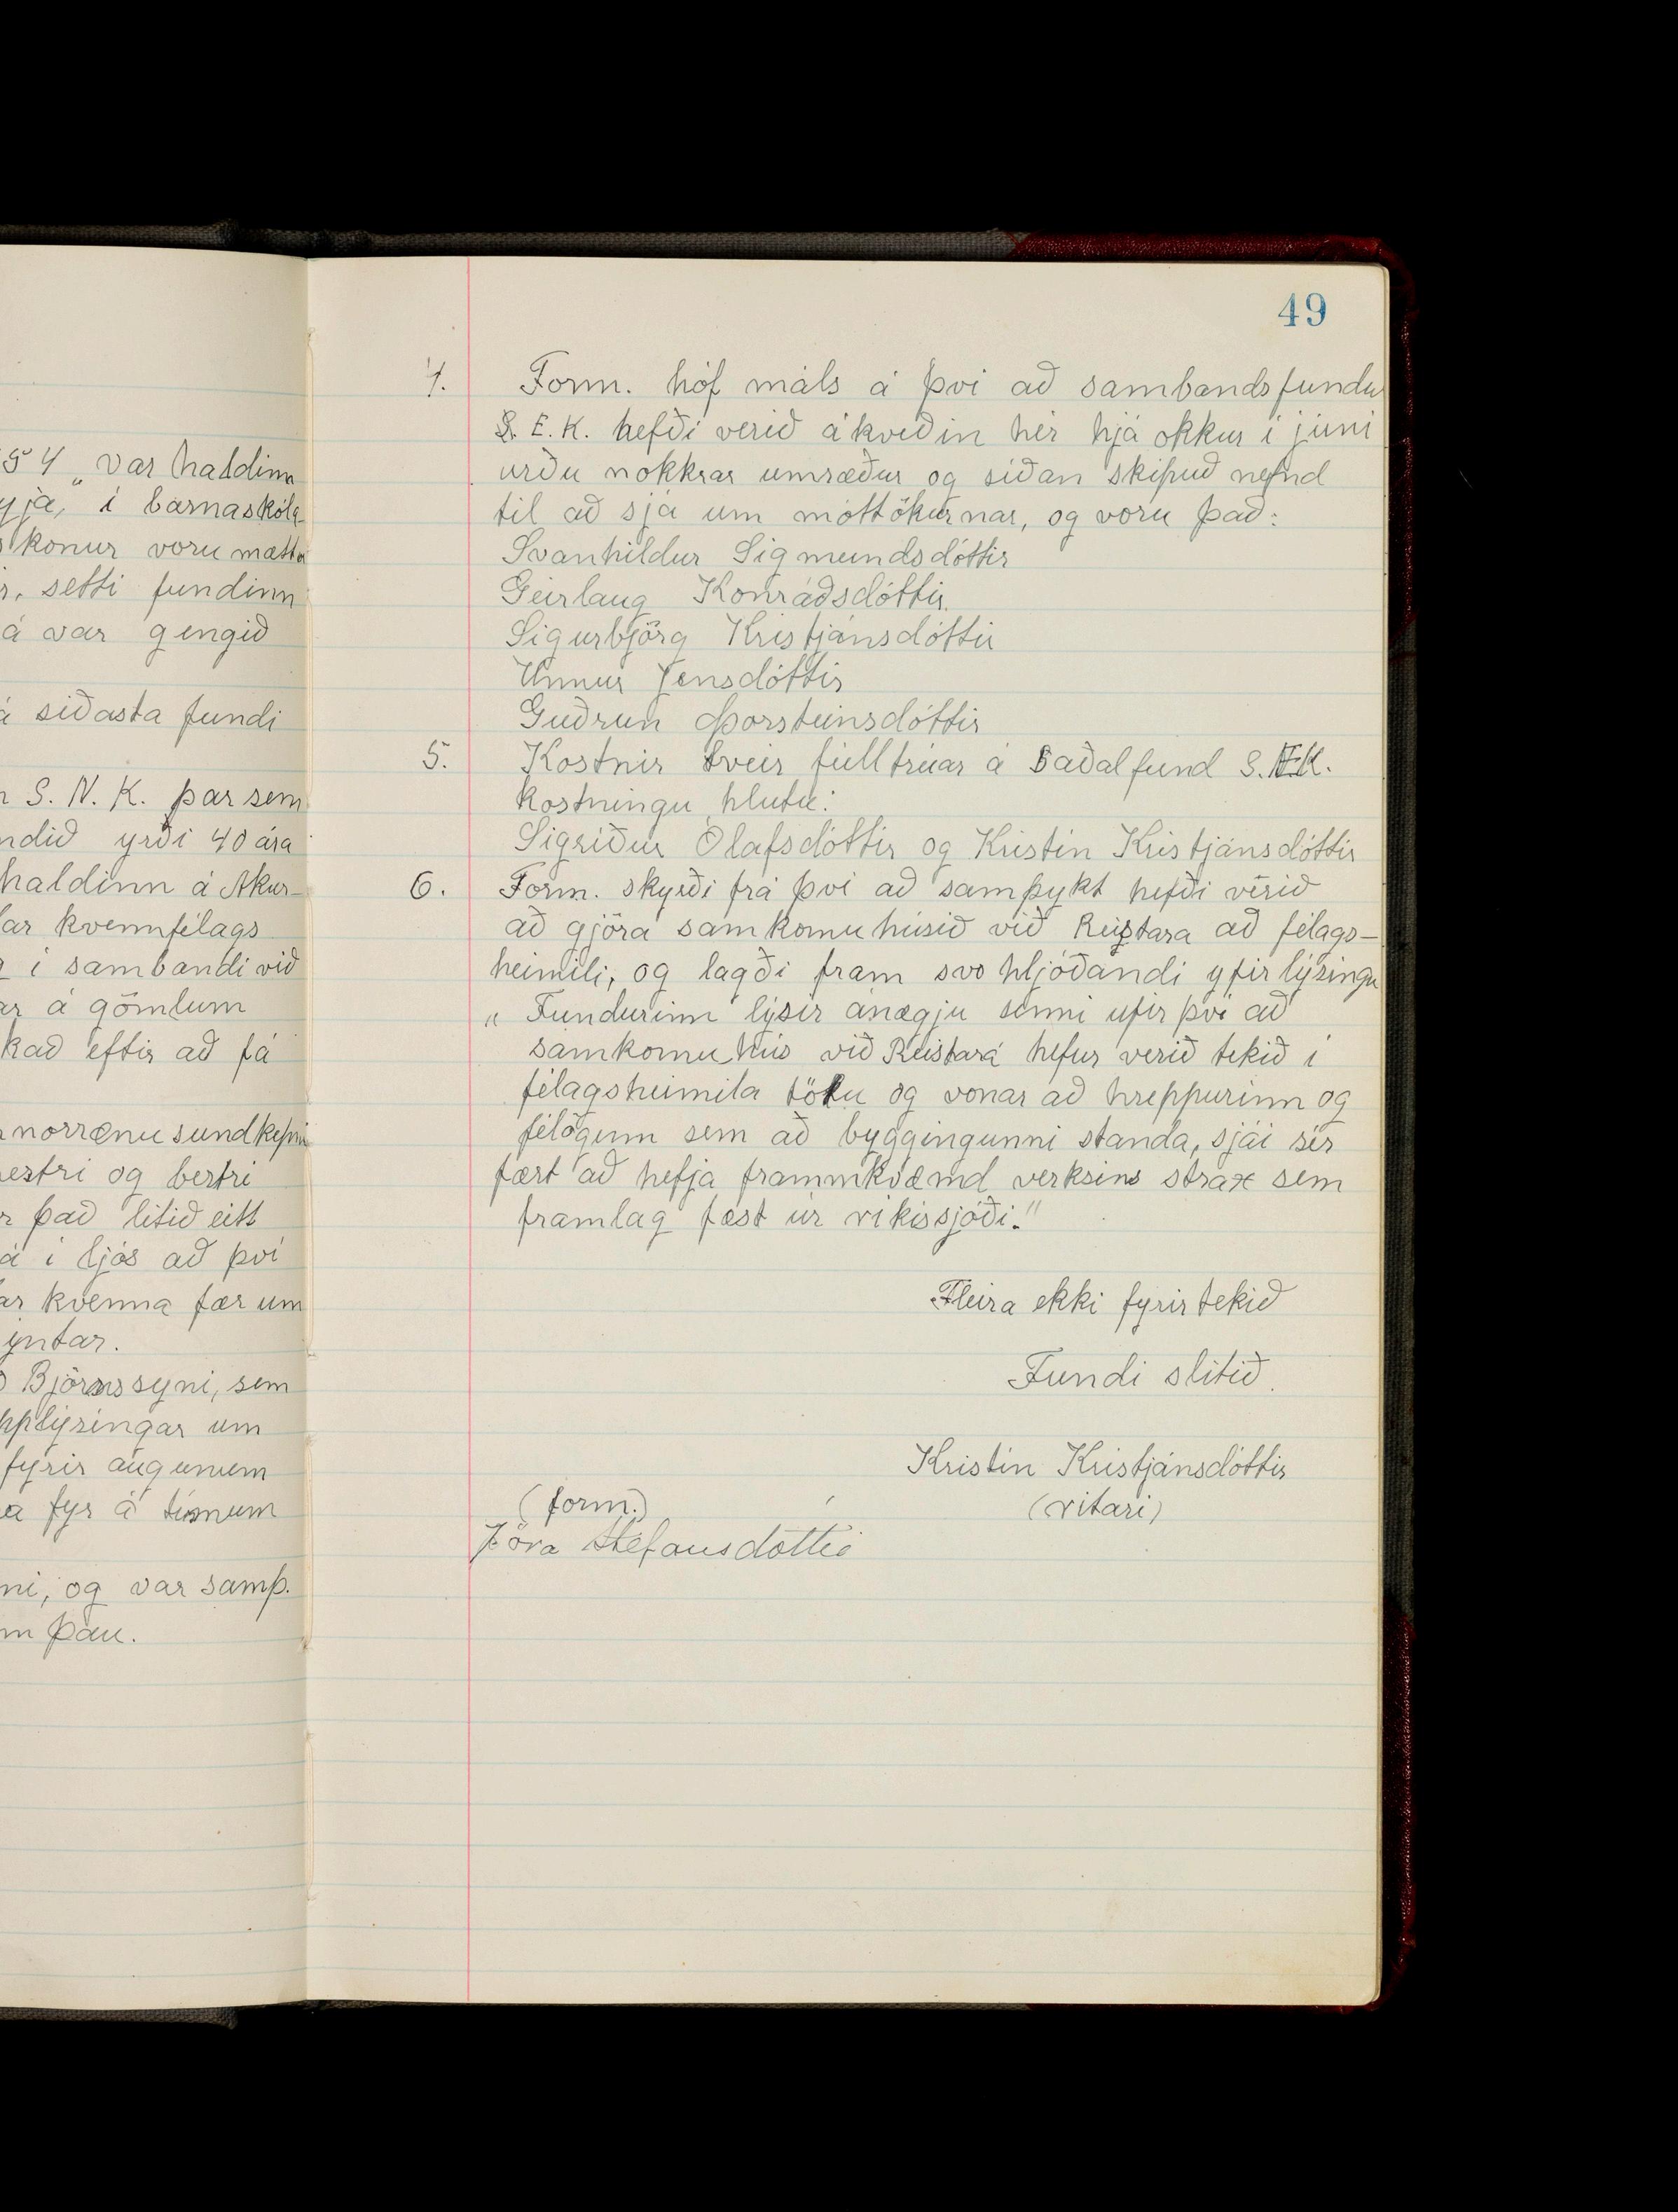 54 „ var haldinn
yja, í barnaskóla
konur voru mætta
r. setti fundinn
á var gengið
á síðasta fundi
S. N. K. þar sem
ndið yrði 40 ára
haldinn á Akur-
ar kvennfélags
í sambandi við
ar á gömlum
kað eftir að fá
norrænu sundkepni
estri og bestri
r það lítið eitt
á í ljós að því
ar kvenna fær um
yntar.
Björnssyni, sem
upplýsingar um
fyrir augunum
a fyr á tímum
ni, og var samþ.
m þau.
49
4. Form. hóf máls á því að sambandsfundur
S. E. K. hefði verið ákveðin hér hjá okkur í júní
urðu nokkrar umræður og síðan skipuð nefnd
til að sjá um móttökurnar, og voru það:
Svanhildur Sigmundsdóttir
Geirlaug Konráðsdóttir
Sigurbjörg Kristjánsdóttir
Unnur Jensdóttir
Guðrún Þorsteinsdóttir
5. Kostnir tveir fulltrúar á aðalfund S.E.K.
kostningu hlutu:
Sigríður Ólafsdóttir og Kristín Kristjánsdóttir
6. Form. skyrði frá því að samþykt hefði vérið
að gjöra samkomuhúsið við Reistara að félags-
heimili, og lagði fram svo hljóðandi yfirlýsingu
„ Fundurinn lýsir ánægju sinni yfir því að
samkomuhús við Reistará hefur verið tekið í
félagsheimila tölu og vonar að hreppurinn og
félögunn sem að byggingunni standa, sjái sér
fært að hefja frammkvæmd verksins strax sem
framlag fæst úr ríkissjóði."
Fleira ekki fyrirtekið
Fundi slitið.
Kristín Kristjánsdóttir
(ritari)
(form.)
Þóra Stefansdóttir